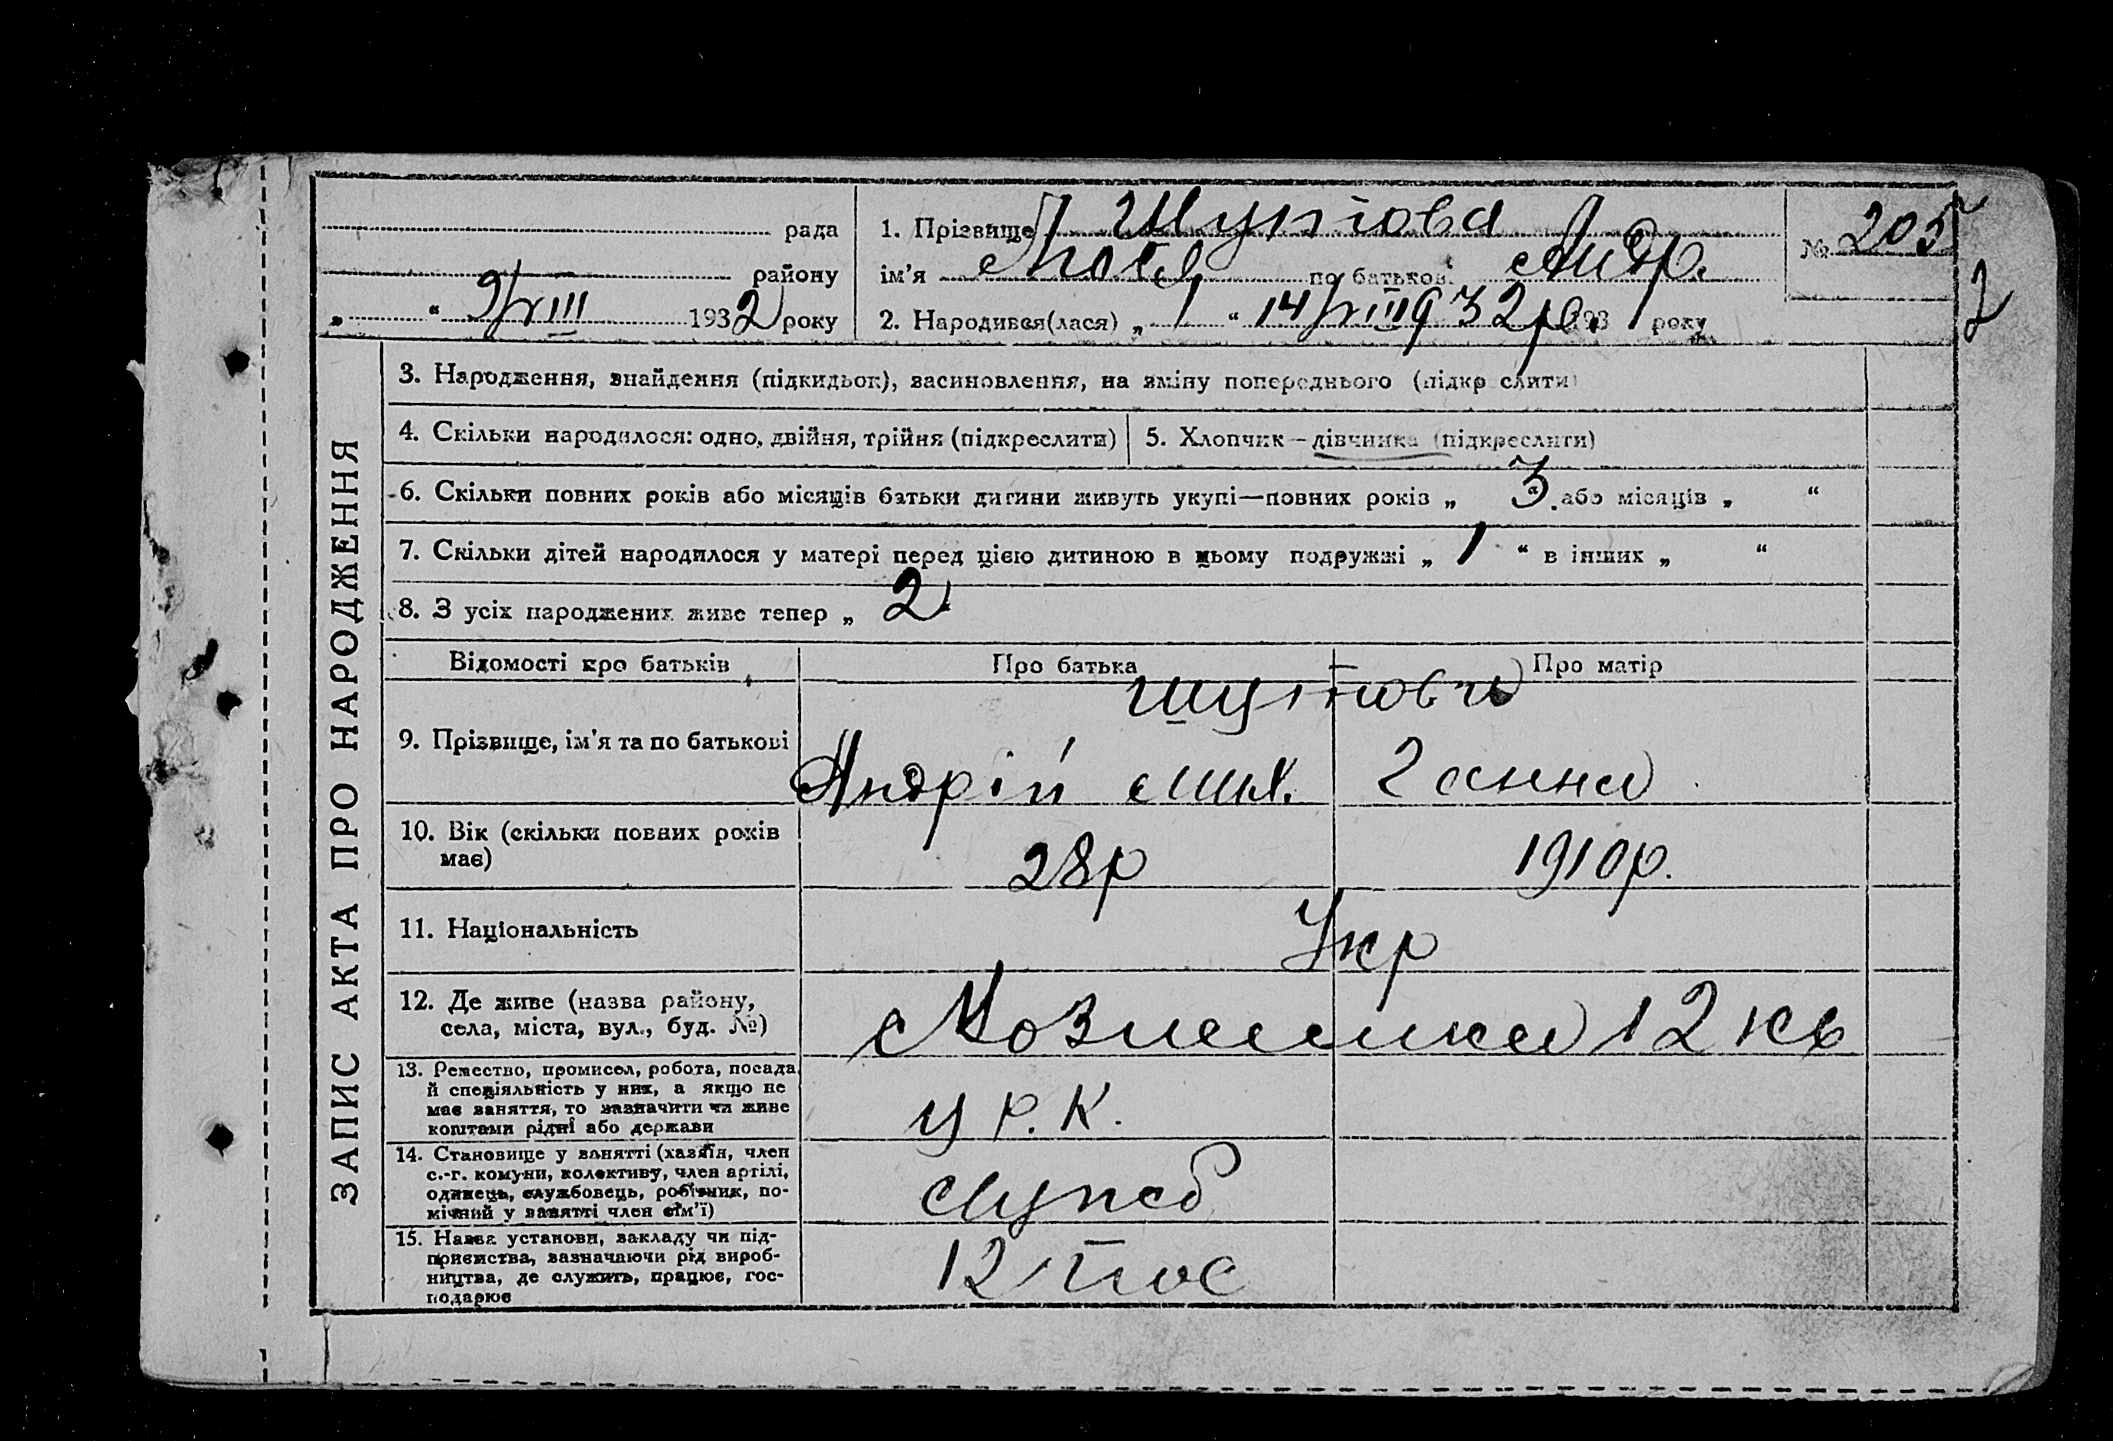 рада
району
„ “ 9/VIII 1932 року
1. Прізвище Шутова
ім’я по батьков. Андр.
2. Народився(лася) „ “ 14/VII 1932р. 193 року
№ 205
2
ЗАПИС АКТА ПРО НАРОДЖЕННЯ
3. Народження, знайдення (підкидьок), засиновлення, на зміну попереднього (підкр слити)
4. Скільки народилося: одно, двійня, трійня (підкреслити)
5. Хлопчик – дівчинка (підкреслити)
6. Скільки повних років або місяців батьки дитини живуть укупі—повних років „ 3 “. або місяців „ “
7. Скільки дітей народилося у матері перед цією дитиною в цьому подружжі „ 1 “ в інших „ “
8. З усіх народжених живе тепер „ 2
Відомості про батьків
Про батька
Про матір
9. Прізвище, ім’я та по батькові
Шутови
Андрій Мих.
Ганна
10. Вік (скільки повних років
має)
28р
1910р.
11. Національність
Укр
12. Де живе (назва району,
села, міста, вул., буд. №)
12 кв
13. Ремество, промисел, робота, посада
й спеціяльність у них, а якщо не
має заняття, то зазначити чи живе
коштами рідні або держави
у Р.К.
14. Становище у занятті (хазяїн, член
с.-г. комуни, колективу, член артілі,
одинець, службовець, робітник, по-
мічний у занятті член сім’ї)
15. Назва установи, закладу чи під-
приємства, зазначаючи рід вироб-
ництва, де служить, працює, гос-
подарює
12